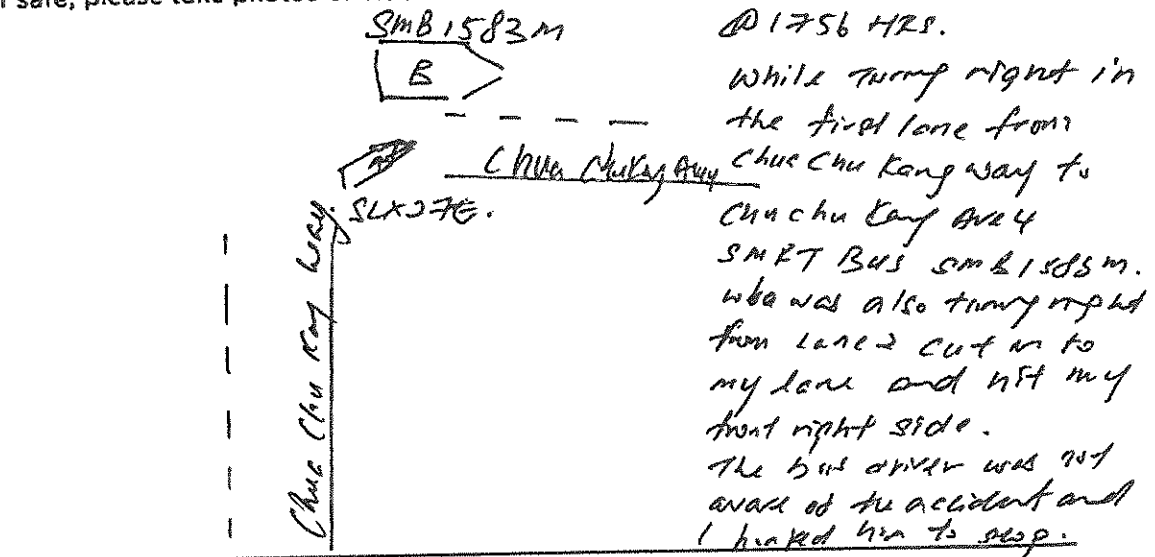 safe, please take photos of
SMB1583M
B
Chua Chu Kang Ave 4
SLX27E.
Chua Chu Kang Way.
@1756 HRS.
While turning right in
the first lane from
Chua Chu Kang way to
Chu chu Kang Ave 4
SMRT Bus SMB1583M.
who was also turning right
from Lane 2 cut in to
my lane and hit my
front right side.
The bus driver was not
aware of the accident and
I honked him to stop.